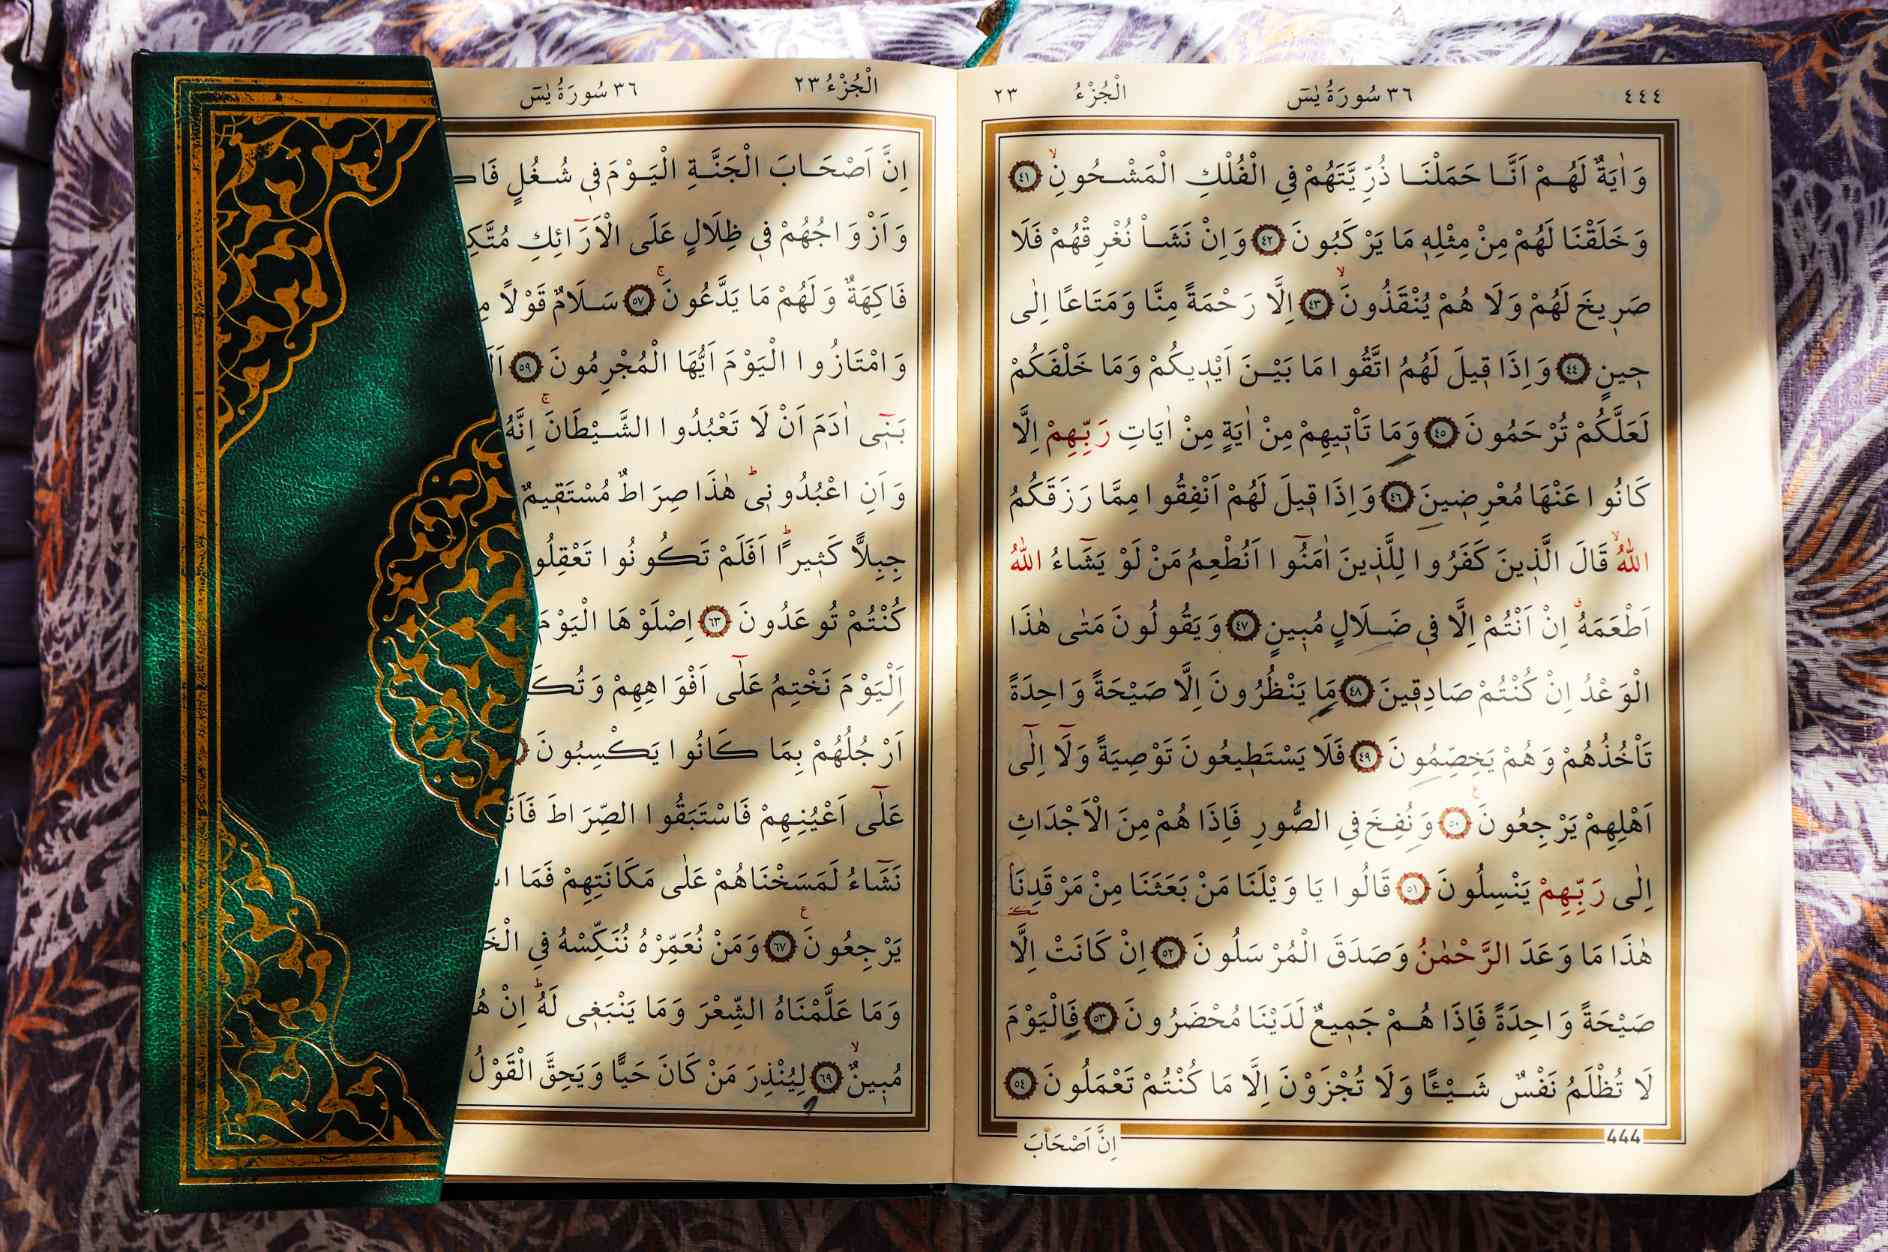 ٤٤٤ ٣٦ سُورَةُ يٰسٓ اَلْجُزْءُ ٢٣
وَاٰيَةٌ لَهُمْ اَنَّا حَمَلْنَا ذُرِّيَّتَهُمْ فِي الْفُلْكِ الْمَشْحُونِۙ ٤١
وَخَلَقْنَا لَهُمْ مِنْ مِثْلِهٖ مَا يَرْكَبُونَ ٤٢ وَاِنْ نَشَاْ نُغْرِقْهُمْ فَلَا
صَرٖيخَ لَهُمْ وَلَا هُمْ يُنْقَذُونَۙ ٤٣ اِلَّا رَحْمَةً مِنَّا وَمَتَاعًا اِلٰى
حٖينٍ ٤٤ وَاِذَا قٖيلَ لَهُمُ اتَّقُوا مَا بَيْنَ اَيْدٖيكُمْ وَمَا خَلْفَكُمْ
لَعَلَّكُمْ تُرْحَمُونَ ٤٥ وَمَا تَاْتٖيهِمْ مِنْ اٰيَةٍ مِنْ اٰيَاتِ رَبِّهِمْ اِلَّا
كَانُوا عَنْهَا مُعْرِضٖينَ ٤٦ وَاِذَا قٖيلَ لَهُمْ اَنْفِقُوا مِمَّا رَزَقَكُمُ
اللّٰهُۙ قَالَ الَّذٖينَ كَفَرُوا لِلَّذٖينَ اٰمَنُٓوا اَنُطْعِمُ مَنْ لَوْ يَشَٓاءُ اللّٰهُ
اَطْعَمَهُۗ اِنْ اَنْتُمْ اِلَّا فٖي ضَلَالٍ مُبٖينٍ ٤٧ وَيَقُولُونَ مَتٰى هٰذَا
الْوَعْدُ اِنْ كُنْتُمْ صَادِقٖينَ ٤٨ مَا يَنْظُرُونَ اِلَّا صَيْحَةً وَاحِدَةً
تَاْخُذُهُمْ وَهُمْ يَخِصِّمُونَ ٤٩ فَلَا يَسْتَطٖيعُونَ تَوْصِيَةً وَلَٓا اِلٰٓى
اَهْلِهِمْ يَرْجِعُونَ ٥٠ وَنُفِخَ فِي الصُّورِ فَاِذَا هُمْ مِنَ الْاَجْدَاثِ
اِلٰى رَبِّهِمْ يَنْسِلُونَ ٥١ قَالُوا يَا وَيْلَنَا مَنْ بَعَثَنَا مِنْ مَرْقَدِنَا
هٰذَا مَا وَعَدَ الرَّحْمٰنُ وَصَدَقَ الْمُرْسَلُونَ ٥٢ اِنْ كَانَتْ اِلَّا
صَيْحَةً وَاحِدَةً فَاِذَا هُمْ جَمٖيعٌ لَدَيْنَا مُحْضَرُونَ ٥٣ فَالْيَوْمَ
لَا تُظْلَمُ نَفْسٌ شَيْـًٔا وَلَا تُجْزَوْنَ اِلَّا مَا كُنْتُمْ تَعْمَلُونَ ٥٤
444
اِنَّ اَصْحَابَ
اَلْجُزْءُ ٢٣ ٣٦ سُورَةُ يٰسٓ
اِنَّ اَصْحَابَ الْجَنَّةِ الْيَوْمَ فٖي شُغُلٍ
وَاَزْوَاجُهُمْ فٖي ظِلَالٍ عَلَى الْاَرَٓائِكِ
فَاكِهَةٌ وَلَهُمْ مَا يَدَّعُونَۚ ٥٧ سَلَامٌ قَوْلًا
وَامْتَازُوا الْيَوْمَ اَيُّهَا الْمُجْرِمُونَ ٥٩
بَنٖٓي اٰدَمَ اَنْ لَا تَعْبُدُوا الشَّيْطَانَۚ اِنَّهُ
وَاَنِ اعْبُدُونٖيۜ هٰذَا صِرَاطٌ مُسْتَقٖيمٌ
جِبِلًّا كَثٖيرًاۜ اَفَلَمْ تَكُونُوا
كُنْتُمْ تُوعَدُونَ ٦٣ اِصْلَوْهَا الْيَوْمَ
اَلْيَوْمَ نَخْتِمُ عَلٰٓى اَفْوَاهِهِمْ
اَرْجُلُهُمْ بِمَا كَانُوا يَكْسِبُونَ
عَلٰٓى اَعْيُنِهِمْ فَاسْتَبَقُوا الصِّرَاطَ
نَشَٓاءُ لَمَسَخْنَاهُمْ عَلٰى مَكَانَتِهِمْ فَمَا
يَرْجِعُونَ ٦٧ وَمَنْ نُعَمِّرْهُ نُنَكِّسْهُ فِي
وَمَا عَلَّمْنَاهُ الشِّعْرَ وَمَا يَنْبَغٖي لَهُۜ اِنْ
مُبٖينٌۙ ٦٩ لِيُنْذِرَ مَنْ كَانَ حَيًّا وَيَحِقَّ الْقَوْلُ